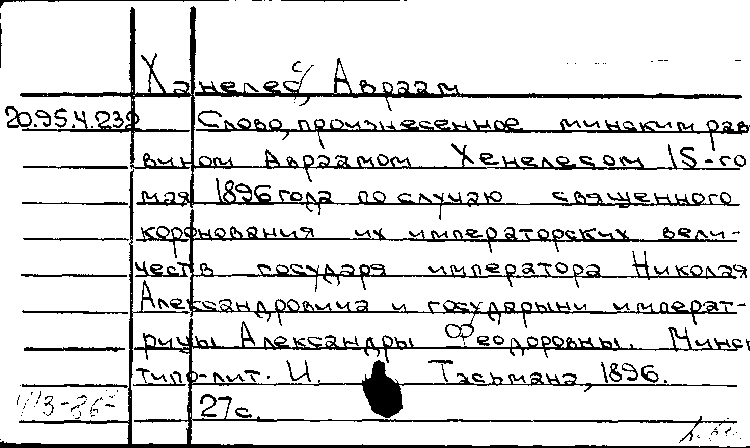 Ханелес, Авраам
20.95.4.232 Слово, произнесенное минским рав
вином Авраамом Хенелесом 15-го
мая 1896 года по случаю священного
коронования их императорских вели-
честв государя императора Николая
Александровича и государыни императ-
рицы Александры Феодоровны. Минск
типо-лит. И. Тасьмана, 1896.
27с.